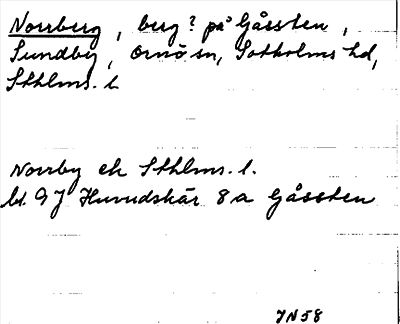 Norrberg, berg? på Gåssten,
Sundby, Ornö sn, Sotholms hd,
Sthlms. l.
Norrby ek Sthlms. l.
bl. 9 J Huvudskär 8 a Gåssten
JN58